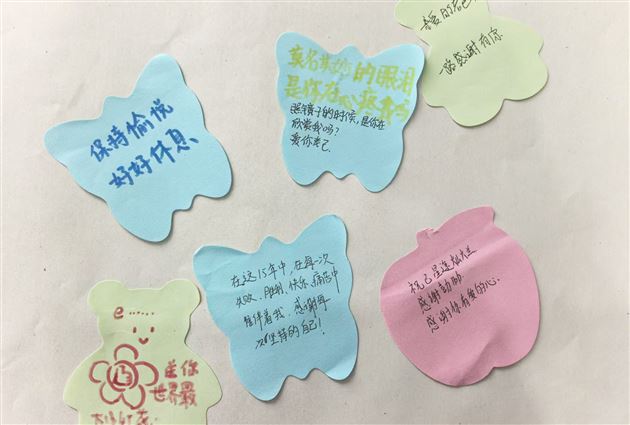 保持愉悦
好好休息
莫名其妙的眼泪
是你在心疼我吗
照镜子的时候,是你在
欣赏我吗?
爱你老己
亲爱的老己
一路感谢有你
e……
在这15年中,在每一次
失败、胜利、快乐、痛苦中
陪伴着我.感谢每
次坚持的自己!
祝己星途灿烂
感谢
感谢你有爱的心.
你
世界最
大